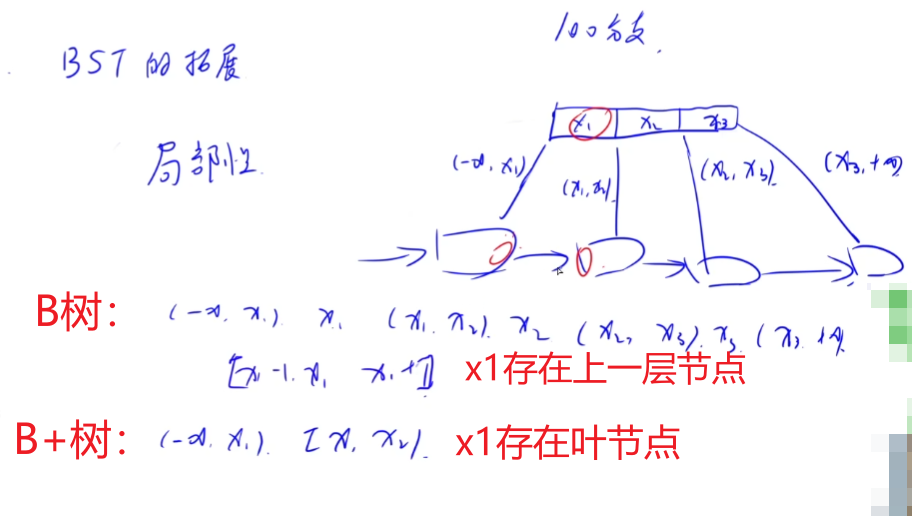 100分支.
BST的拓展
x₁ x₂ x₃
局部性.
(-∞, x₁) (x₁, x₂) (x₂, x₃) (x₃, +∞)
B树： (-∞, x₁) x₁ (x₁, x₂) x₂ (x₂, x₃) x₃ (x₃ +∞)
[x₁-1, x₁ x₁+1] x1存在上一层节点
B+树： (-∞, x₁) [x₁, x₂) x1存在叶节点